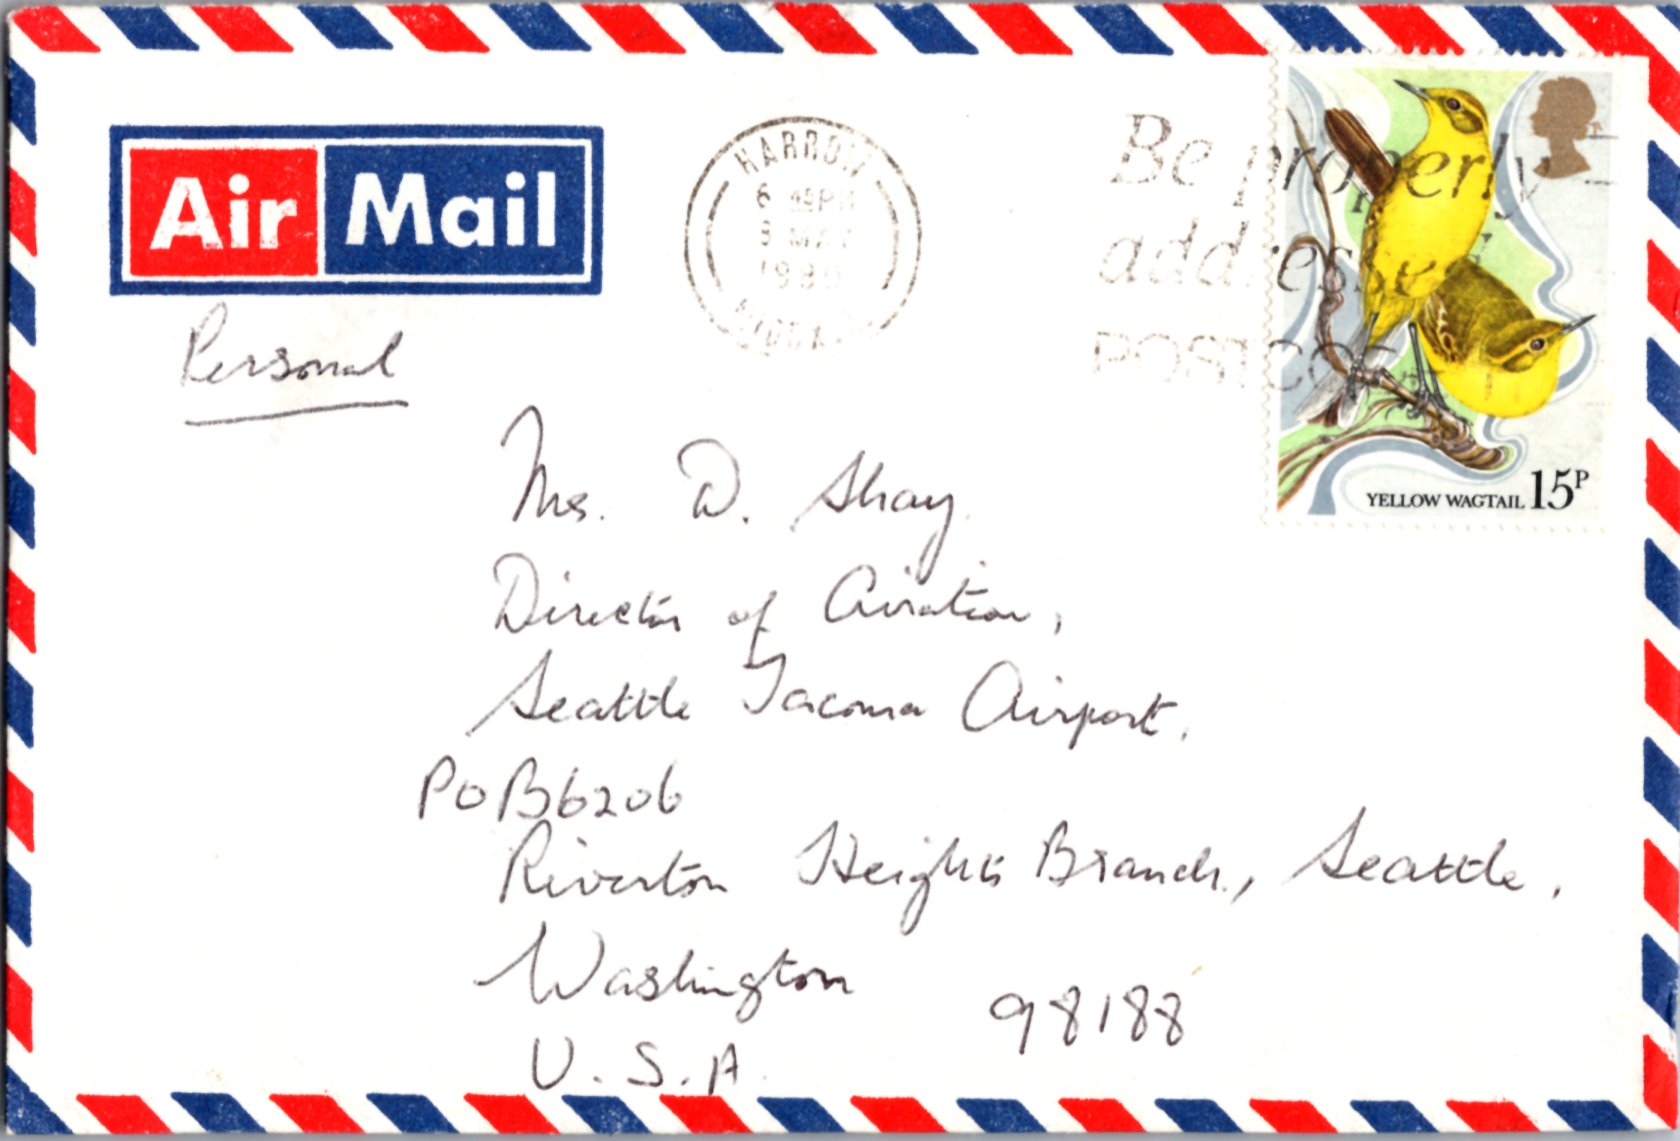 Air Mail
HARROW
6 45PM
MAY
1980
Be properly
addressed
POSTCODE
YELLOW WAGTAIL 15P
Personal
Mr. D. Shay
Director of Aviation,
Seattle Tacoma Airport,
POB 6206
Riverton Heights Branch, Seattle,
Washington 98188
U.S.A.